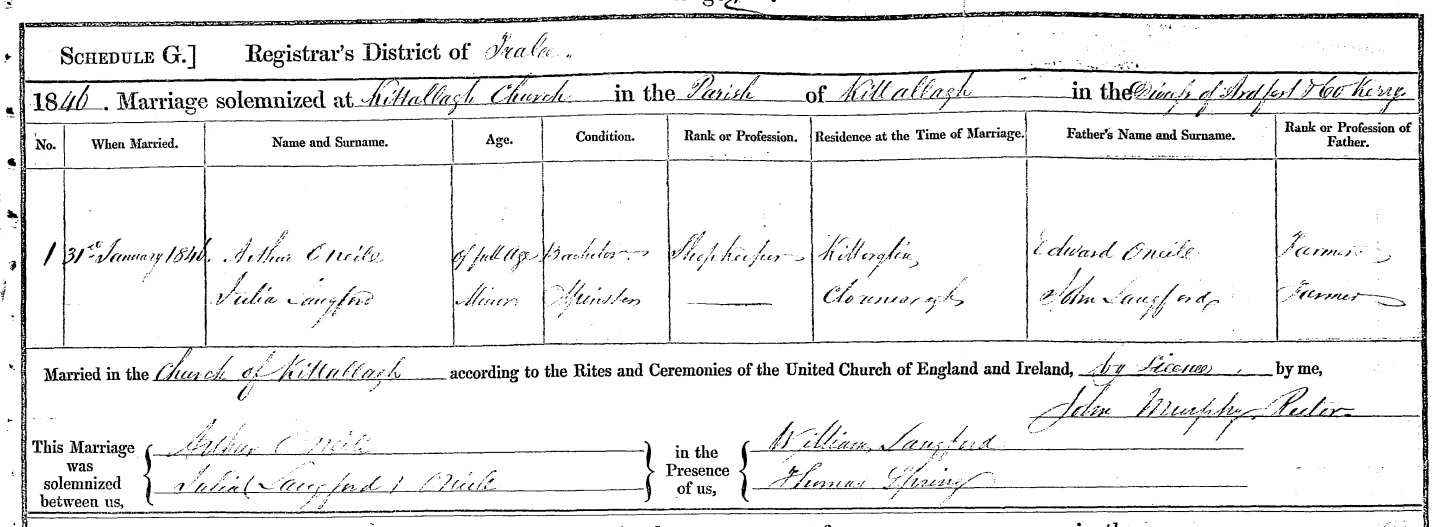 SCHEDULE G.] Registrar's District of Tralee.
1846. Marriage solemnized at Kiltallagh Church in the Parish of Kiltallagh in the Diocess of Ardfert & Co Kerry
No. When Married. Name and Surname. Age. Condition. Rank or Profession. Residence at the Time of Marriage. Father's Name and Surname. Rank or Profession of Father.
1 31st January 1846. Arthur O'Neile of full Age Bachelor Shopkeeper Killorglin Edward O'Neile Farmer
Julia Langford Minor Spinster John Langford Farmer
Married in the Church of Kiltallagh according to the Rites and Ceremonies of the United Church of England and Ireland, by License, by me,
John Murphy Rector
This Marriage was solemnized between us, Arthur O'Neile in the Presence of us, William Langford
Julia (Langford) O'Neile Thomas Spring
in the